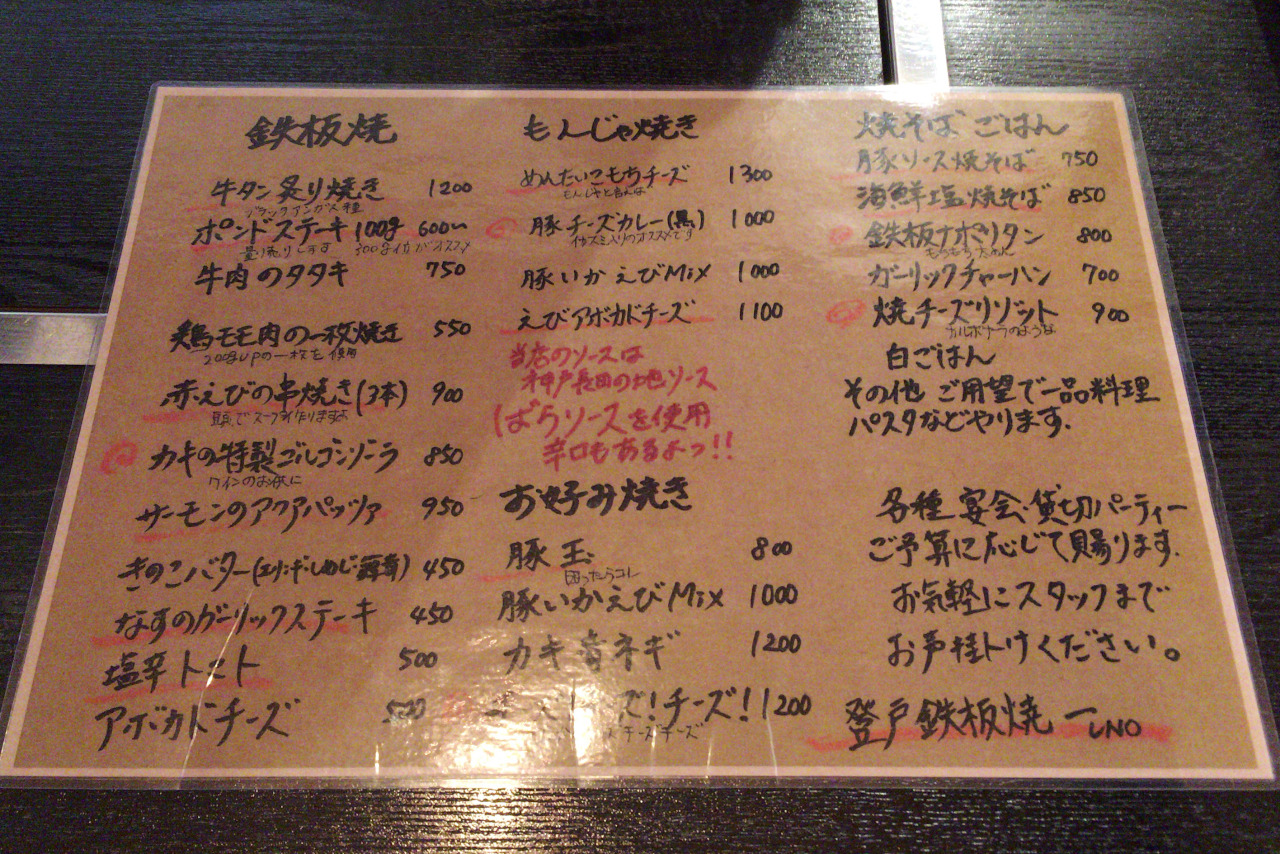 鉄板焼
牛タン炙り焼き 1200
ブラックアンガス種
ポンドステーキ 100g 600〜
量り売りします 300gくらいがオススメ
牛肉のタタキ 750
鶏モモ肉の一枚焼き 550
200gUPの一枚を使用
赤えびの串焼き(3本) 900
頭でスープ作りますよ
カキの特製ゴルゴンゾーラ 850
ワインのお供に
サーモンのアクアパッツァ 950
きのこバター(エリンギ・しめじ・舞茸) 450
なすのガーリックステーキ 450
塩辛トマト 500
アボカドチーズ 500
もんじゃ焼き
めんたいこもちチーズ 1300
もんじゃと言えば
豚チーズカレー(黒) 1000
イカスミ入りのオススメです
豚いかえびMix 1000
えびアボカドチーズ 1100
当店のソースは
神戸長田の地ソース
ばらソースを使用
辛口もあるよっ!!
お好み焼き
豚玉 800
困ったらコレ
豚いかえびMix 1000
カキ青ネギ 1200
ズ!チーズ! 1200
チーズチーズ
焼そば ごはん
豚ソース焼そば 750
海鮮塩焼そば 850
鉄板ナポリタン 800
もちもちうめん
ガーリックチャーハン 700
焼チーズリゾット 900
カルボナーラのような
白ごはん
その他 ご用望で一品料理
パスタなどやります.
各種宴会、貸切パーティー
ご予算に応じて賜ります.
お気軽にスタッフまで
お声掛けください。
登戸鉄板焼 一UNO